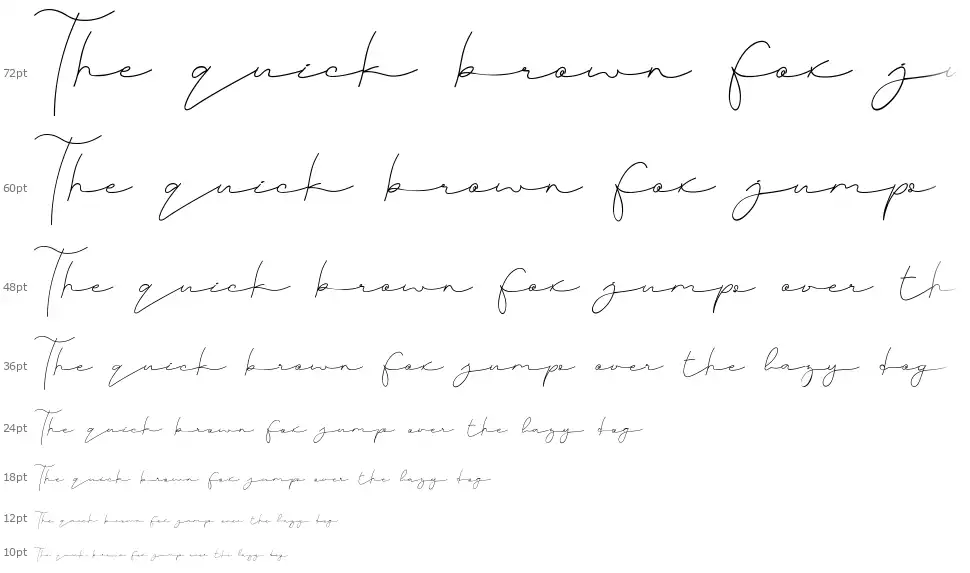 72pt The quick brown fox ju
60pt The quick brown fox jumps
48pt The quick brown fox jumps over th
36pt The quick brown fox jumps over the lazy dog
24pt The quick brown fox jump over the lazy dog
18pt The quick brown fox jump over the lazy dog
12pt The quick brown fox jump over the lazy dog
10pt The quick brown fox jump over the lazy dog